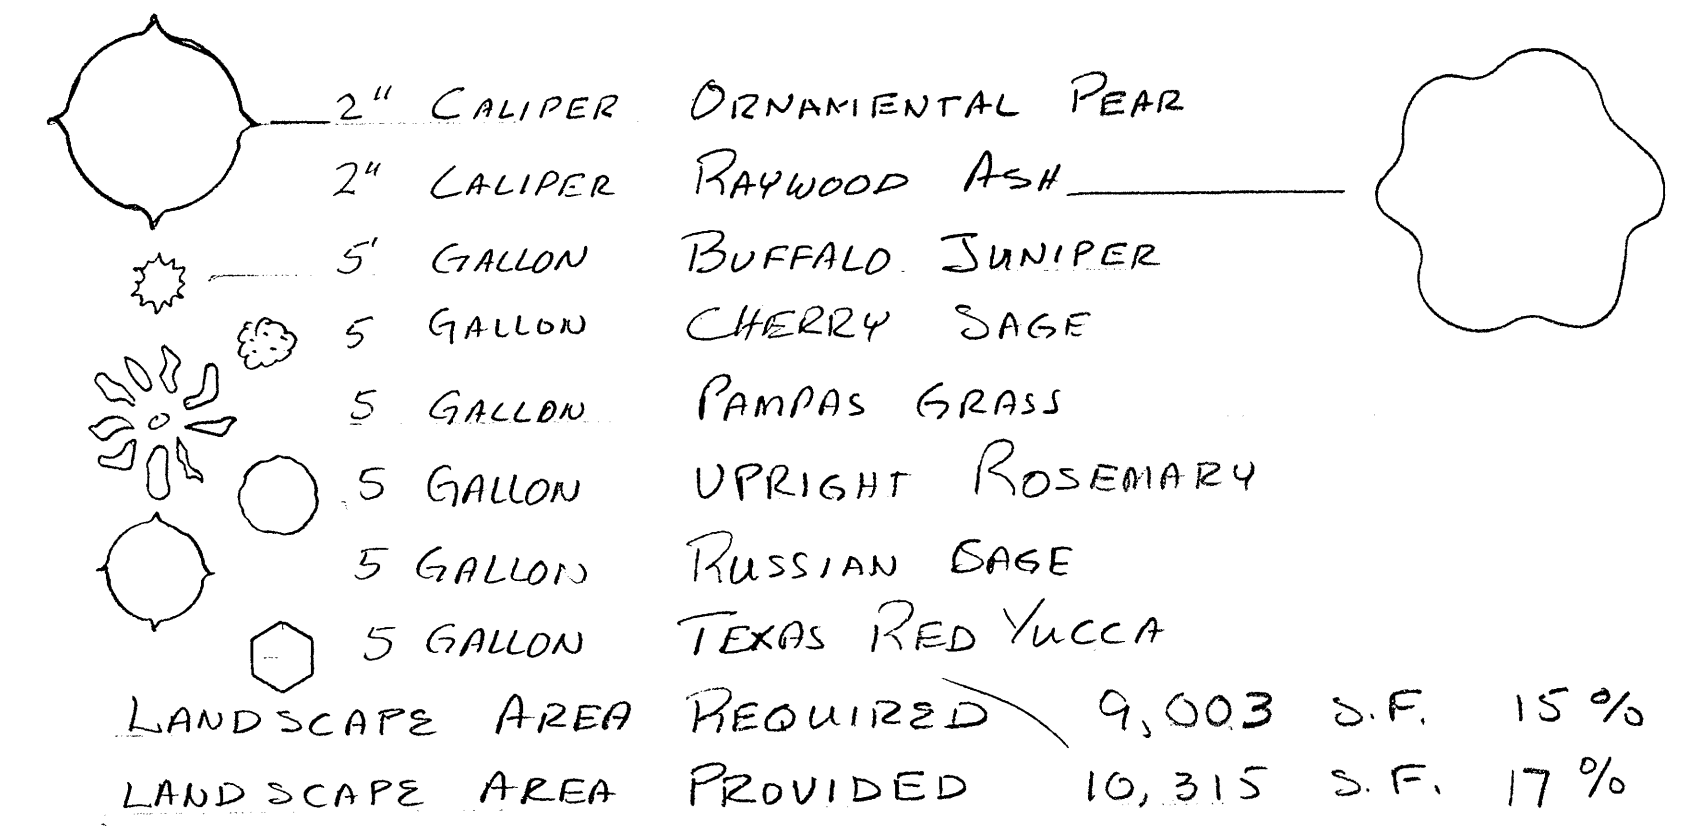 2" CALIPER ORNAMENTAL PEAR
2" CALIPER RAYWOOD ASH
5' GALLON BUFFALO JUNIPER
5 GALLON CHERRY SAGE
5 GALLON PAMPAS GRASS
5 GALLON UPRIGHT ROSEMARY
5 GALLON RUSSIAN SAGE
5 GALLON TEXAS RED YUCCA
LANDSCAPE AREA REQUIRED 9,003 S.F. 15%
LANDSCAPE AREA PROVIDED 10,315 S.F. 17%